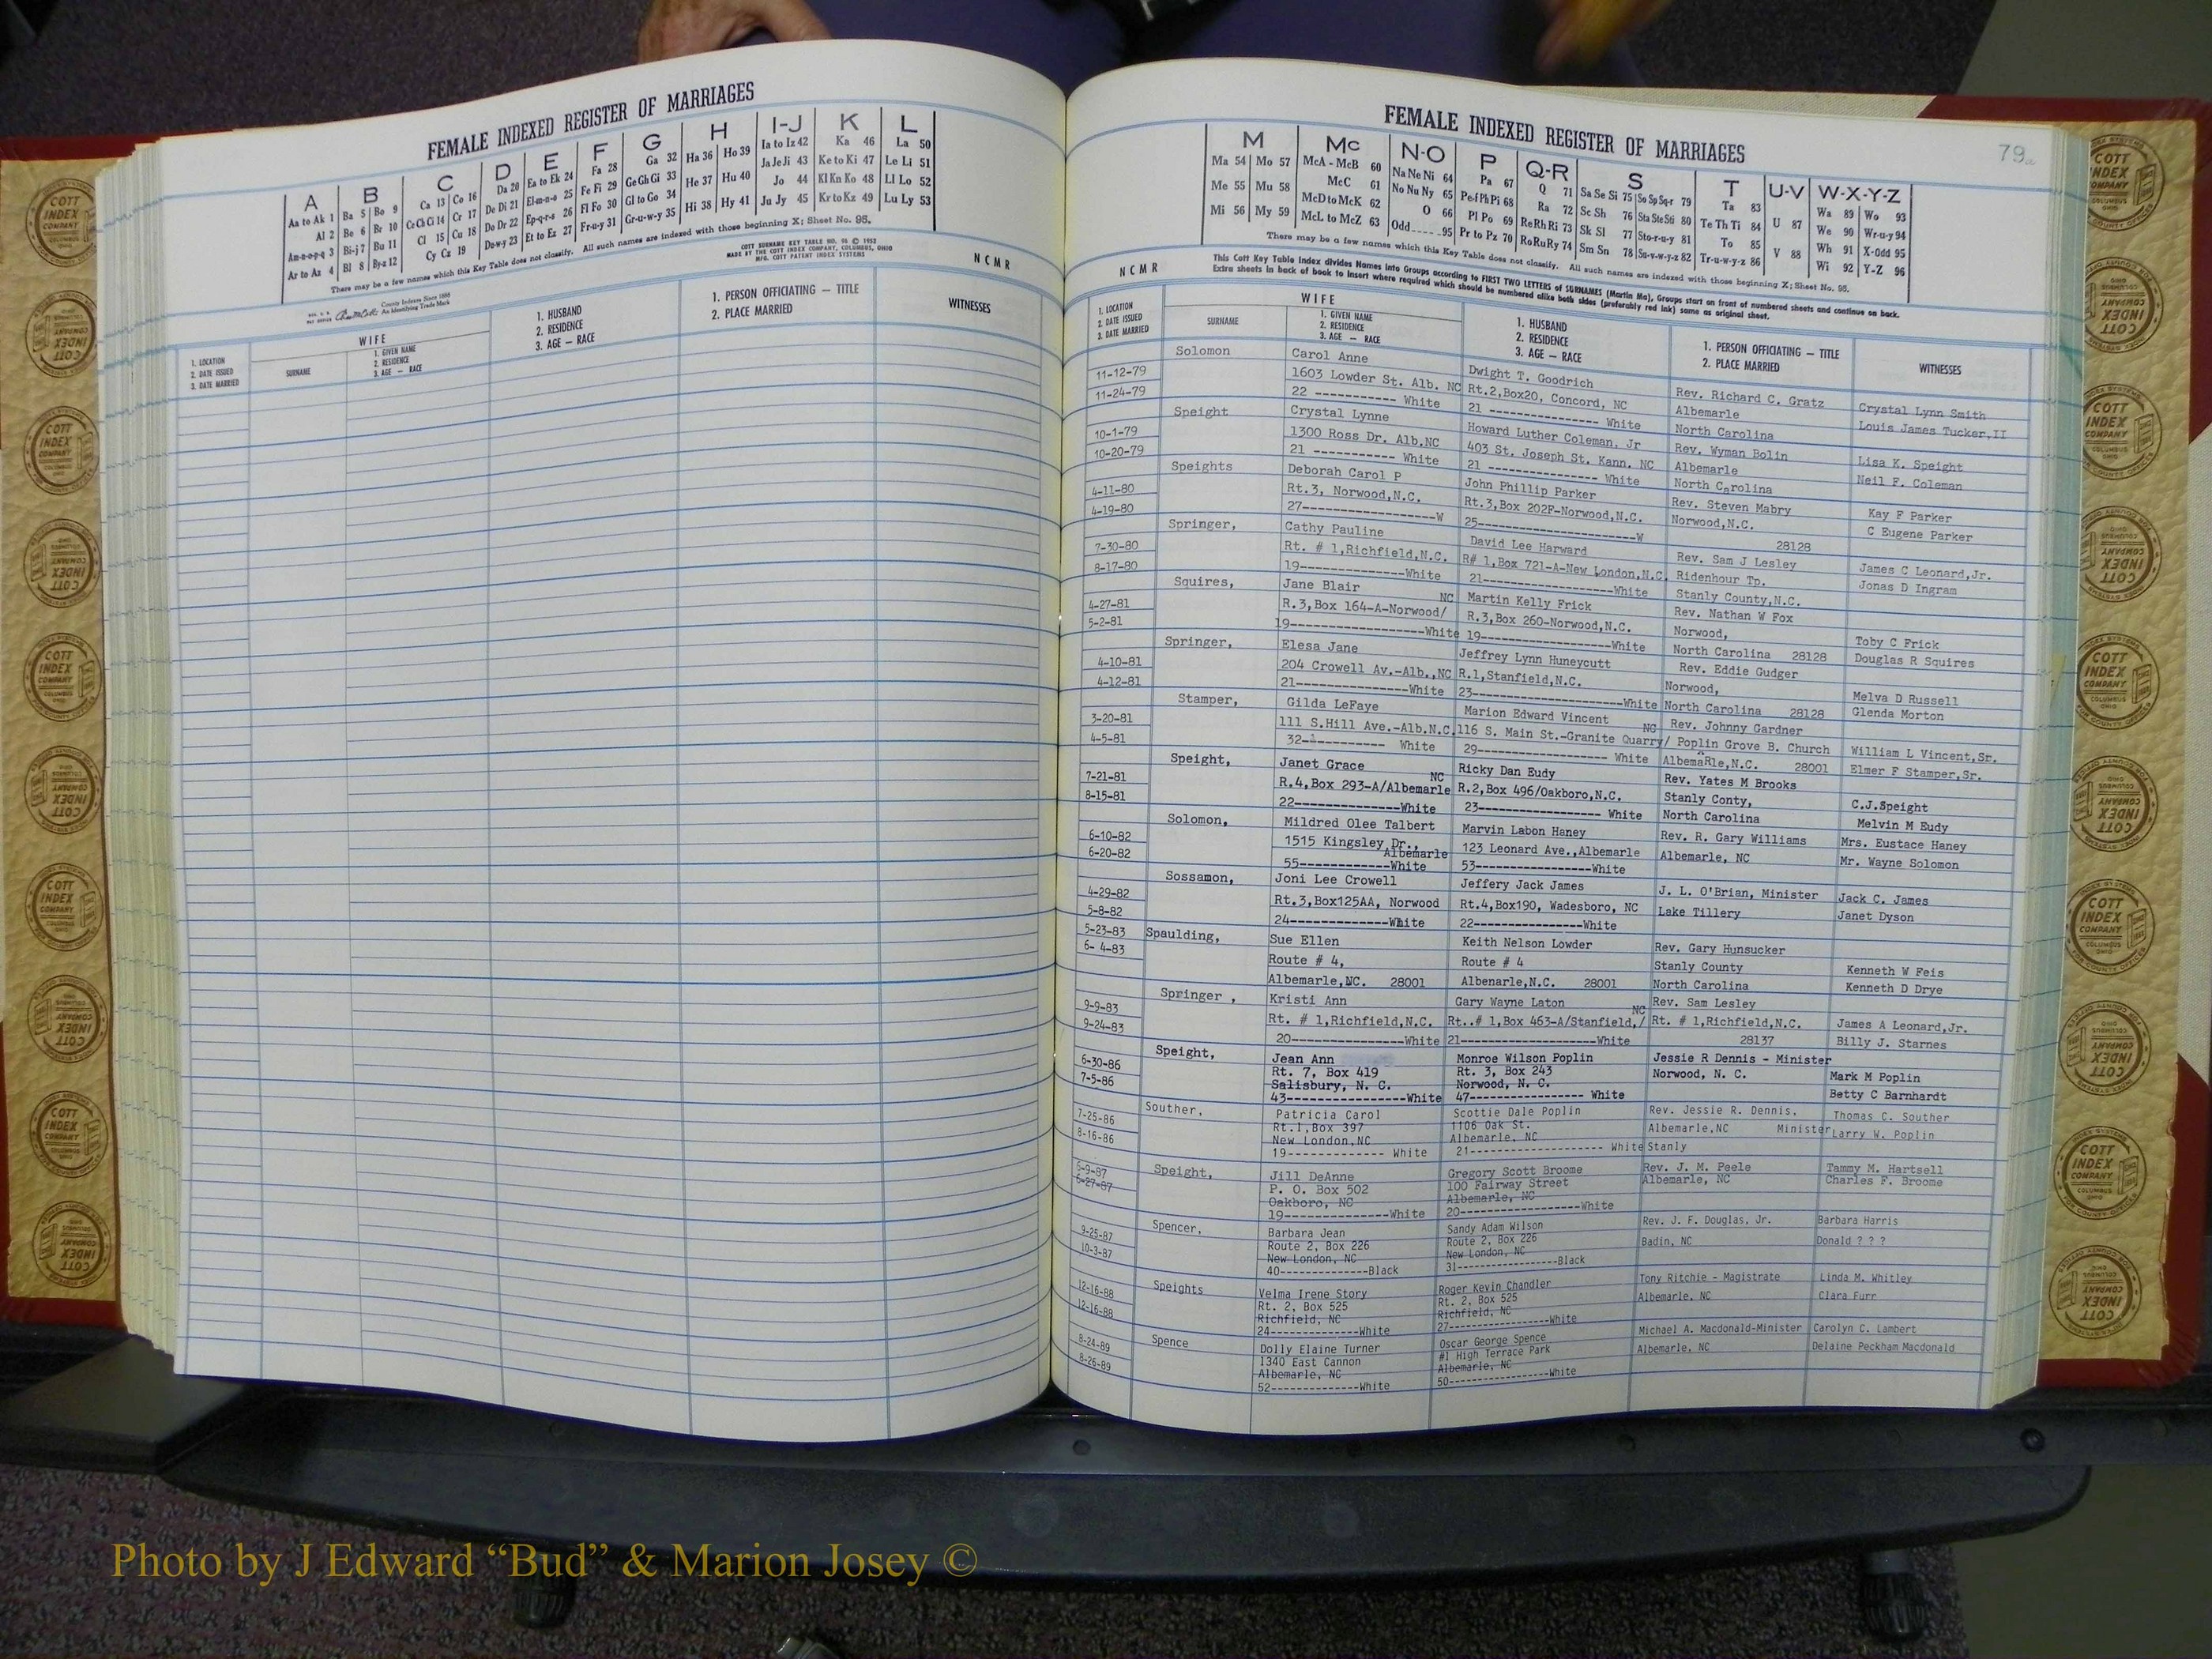 FEMALE INDEXED REGISTER OF MARRIAGES
A B C D E F G H I-J K L
Aa to Ak 1 Ba 5 Bo 9 Ca 13 Co 16 Da 20 Ea to Ek 24 Fa 28 Ga 32 Ha 36 Ho 39 Ia to Iz 42 Ka 46 La 50
Al 2 Be 6 Br 10 Ce Ch Ci 14 Cr 17 De Di 21 El-m-n-o 25 Fe Fi 29 Ge Gh Gi 33 He 37 Hu 40 Ja Je Ji 43 Ke to Ki 47 Le Li 51
Am-n-o-p-q 3 Bi-j 7 Bu 11 Cl 15 Cu 18 Do Dr 22 Ep-q-r-s 26 Fl Fo 30 Gl to Go 34 Hi 38 Hy 41 Jo 44 Kl Kn Ko 48 Ll Lo 52
Ar to Az 4 Bl 8 By-z 12 Cy Cz 19 D-w-y 23 Et to Ez 27 Fr-u-y 31 Gr-u-w-y 35 Ju Jy 45 Kr to Kz 49 Lu Ly 53
There may be a few names which this Key Table does not classify. All such names are indexed with those beginning X; Sheet No. 95.
COTT SURNAME KEY TABLE NO. 96 © 1952
MADE BY THE COTT INDEX COMPANY, COLUMBUS, OHIO
MFG. COTT PATENT INDEX SYSTEMS
County Indexes Since 1888
An Identifying Trade Mark
N C M R
1. LOCATION
2. DATE ISSUED
3. DATE MARRIED
WIFE
SURNAME
1. GIVEN NAME
2. RESIDENCE
3. AGE — RACE
1. HUSBAND
2. RESIDENCE
3. AGE — RACE
1. PERSON OFFICIATING — TITLE
2. PLACE MARRIED
WITNESSES
FEMALE INDEXED REGISTER OF MARRIAGES
79
M Mc N-O P Q-R S T U-V W-X-Y-Z
Ma 54 Mo 57 McA - McB 60 Na Ne Ni 64 Pa 67 Q 71 Sa Se Si 75 So Sp Sq-r 79 Ta 83 U 87 Wa 89 Wo 93
Me 55 Mu 58 McC 61 No Nu Ny 65 Pe-f Ph Pi 68 Ra 72 Sc Sh 76 Sta Ste Sti 80 Te Th Ti 84 V 88 We 90 Wr-u-y 94
Mi 56 My 59 McD to McK 62 O 66 Pl Po 69 Re Rh Ri 73 Sk Sl 77 Sto-r-u-y 81 To 85 Wh 91 X-Odd 95
McL to McZ 63 Odd 95 Pr to Pz 70 Ro Ru Ry 74 Sm Sn 78 Su-v-w-y-z 82 Tr-u-w-y-z 86 Wi 92 Y-Z 96
There may be a few names which this Key Table does not classify. All such names are indexed with those beginning X; Sheet No. 95.
This Cott Key Table Index divides Names into Groups according to FIRST TWO LETTERS of SURNAMES (Martin Ma), Groups start on front of numbered sheets and continue on back.
Extra sheets in back of book to insert where required which should be numbered alike both sides (preferably red ink) same as original sheet.
N C M R
1. LOCATION
2. DATE ISSUED
3. DATE MARRIED
WIFE
SURNAME
1. GIVEN NAME
2. RESIDENCE
3. AGE — RACE
1. HUSBAND
2. RESIDENCE
3. AGE — RACE
1. PERSON OFFICIATING — TITLE
2. PLACE MARRIED
WITNESSES
Solomon Carol Anne Dwight T. Goodrich Rev. Richard C. Gratz Crystal Lynn Smith
11-12-79 1603 Lowder St. Alb. NC Rt.2,Box20, Concord, NC Albemarle Louis James Tucker,II
11-24-79 22 ----------- White 21 -------------- White North Carolina
Speight Crystal Lynne Howard Luther Coleman, Jr Rev. Wyman Bolin Lisa K. Speight
10-1-79 1300 Ross Dr. Alb,NC 403 St. Joseph St. Kann. NC Albemarle Neil F. Coleman
10-20-79 21 ----------- White 21 -------------- White North Carolina
Speights Deborah Carol P John Phillip Parker Rev. Steven Mabry Kay F Parker
4-11-80 Rt.3, Norwood,N.C. Rt.3,Box 202F-Norwood,N.C. Norwood,N.C. C Eugene Parker
4-19-80 27----------------W 25--------------------W 28128
Springer, Cathy Pauline David Lee Harward Rev. Sam J Lesley James C Leonard,Jr.
7-30-80 Rt. # 1,Richfield,N.C. R# 1,Box 721-A-New London,N.C. Ridenhour Tp. Jonas D Ingram
8-17-80 19---------------White 21----------------White Stanly County,N.C.
Squires, Jane Blair Martin Kelly Frick Rev. Nathan W Fox Toby C Frick
4-27-81 R.3,Box 164-A-Norwood/ NC R.3,Box 260-Norwood,N.C. Norwood, Douglas R Squires
5-2-81 19-----------------White 19------------------White North Carolina 28128
Springer, Elesa Jane Jeffrey Lynn Huneycutt Rev. Eddie Gudger Melva D Russell
4-10-81 204 Crowell Av.-Alb.,NC R.1,Stanfield,N.C. Norwood, Glenda Morton
4-12-81 21----------------White 23------------------White North Carolina 28128
Stamper, Gilda LeFaye Marion Edward Vincent Rev. Johnny Gardner William L Vincent,Sr.
3-20-81 111 S.Hill Ave.-Alb.N.C. 116 S. Main St.-Granite Quarry/ NC Poplin Grove B. Church Elmer F Stamper,Sr.
4-5-81 32------------ White 29------------------ White Albemarle,N.C. 28001
Speight, Janet Grace Ricky Dan Eudy Rev. Yates M Brooks C.J.Speight
7-21-81 R.4,Box 293-A/Albemarle NC R.2,Box 496/Oakboro,N.C. Stanly Conty, Melvin M Eudy
8-15-81 22---------------White 23----------------- White North Carolina
Solomon, Mildred Olee Talbert Marvin Labon Haney Rev. R. Gary Williams Mrs. Eustace Haney
6-10-82 1515 Kingsley Dr., Albemarle 123 Leonard Ave.,Albemarle Albemarle, NC Mr. Wayne Solomon
6-20-82 55-------------White 53----------------White
Sossamon, Joni Lee Crowell Jeffery Jack James J. L. O'Brian, Minister Jack C. James
4-29-82 Rt.3,Box125AA, Norwood Rt.4,Box190, Wadesboro, NC Lake Tillery Janet Dyson
5-8-82 24--------------White 22---------------White
5-23-83 Spaulding, Sue Ellen Keith Nelson Lowder Rev. Gary Hunsucker Kenneth W Feis
6- 4-83 Route # 4, Route # 4 Stanly County Kenneth D Drye
Albemarle,NC. 28001 Albenarle,N.C. 28001 North Carolina
Springer , Kristi Ann Gary Wayne Laton Rev. Sam Lesley James A Leonard,Jr.
9-9-83 Rt. # 1,Richfield,N.C. Rt..# 1,Box 463-A/Stanfield,/ NC Rt. # 1,Richfield,N.C. Billy J. Starnes
9-24-83 20----------------White 21------------------White 28137
Speight, Jean Ann Monroe Wilson Poplin Jessie R Dennis - Minister Mark M Poplin
6-30-86 Rt. 7, Box 419 Rt. 3, Box 243 Norwood, N. C. Betty C Barnhardt
7-5-86 Salisbury, N. C. Norwood, N. C.
43-----------------White 47---------------- White
Souther, Patricia Carol Scottie Dale Poplin Rev. Jessie R. Dennis, Minister Thomas C. Souther
7-25-86 Rt.1,Box 397 1106 Oak St. Albemarle,NC Larry W. Poplin
8-16-86 New London,NC Albemarle, NC
19------------- White 21------------------ White Stanly
Speight, Jill DeAnne Gregory Scott Broome Rev. J. M. Peele Tammy M. Hartsell
6-9-87 P. O. Box 502 100 Fairway Street Albemarle, NC Charles F. Broome
6-27-87 Oakboro, NC Albemarle, NC
19---------------White 20----------------White
Spencer, Barbara Jean Sandy Adam Wilson Rev. J. F. Douglas, Jr. Barbara Harris
9-25-87 Route 2, Box 226 Route 2, Box 226 Badin, NC Donald ? ? ?
10-3-87 New London, NC New London, NC
40--------------Black 31----------------Black
Speights Velma Irene Story Roger Kevin Chandler Tony Ritchie - Magistrate Linda M. Whitley
12-16-88 Rt. 2, Box 525 Rt. 2, Box 525 Albemarle, NC Clara Furr
12-16-88 Richfield, NC Richfield, NC
24--------------White 27----------------White
Spence Dolly Elaine Turner Oscar George Spence Michael A. Macdonald-Minister Carolyn C. Lambert
8-24-89 1340 East Cannon #1 High Terrace Park Albemarle, NC Delaine Peckham Macdonald
8-26-89 Albemarle, NC Albemarle, NC
52--------------White 50----------------White
COTT INDEX COMPANY COLUMBUS OHIO
Photo by J Edward “Bud” & Marion Josey ©